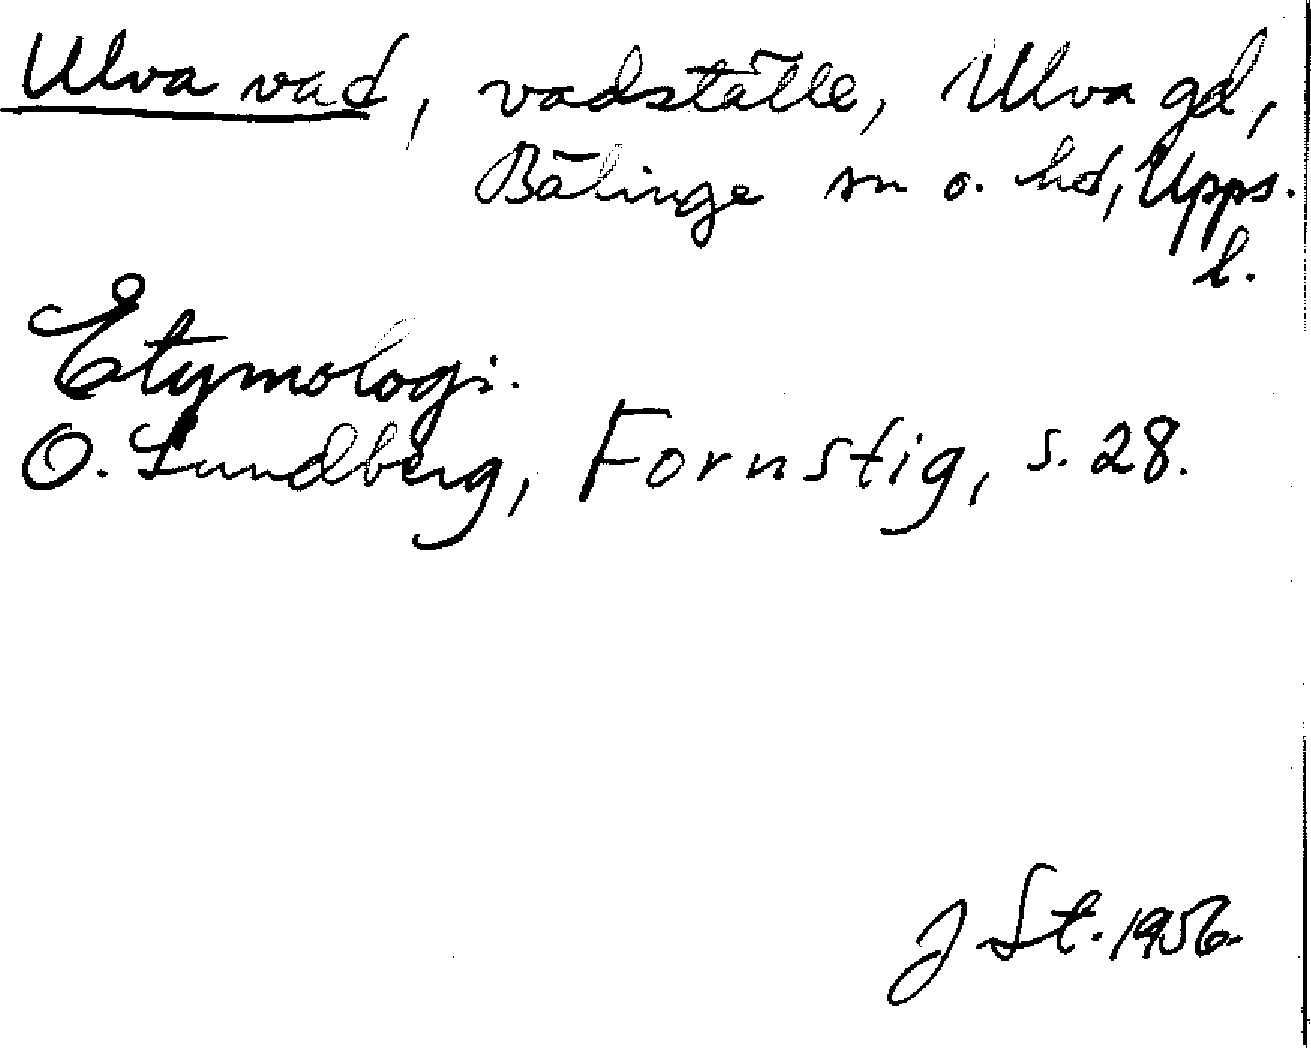 Ulva vad, vadställe, Ulva gd,
Bälinge sn o. hd, Upps.
l.
Etymologi.
O. Lundberg, Fornstig, s. 28.
J St. 1956